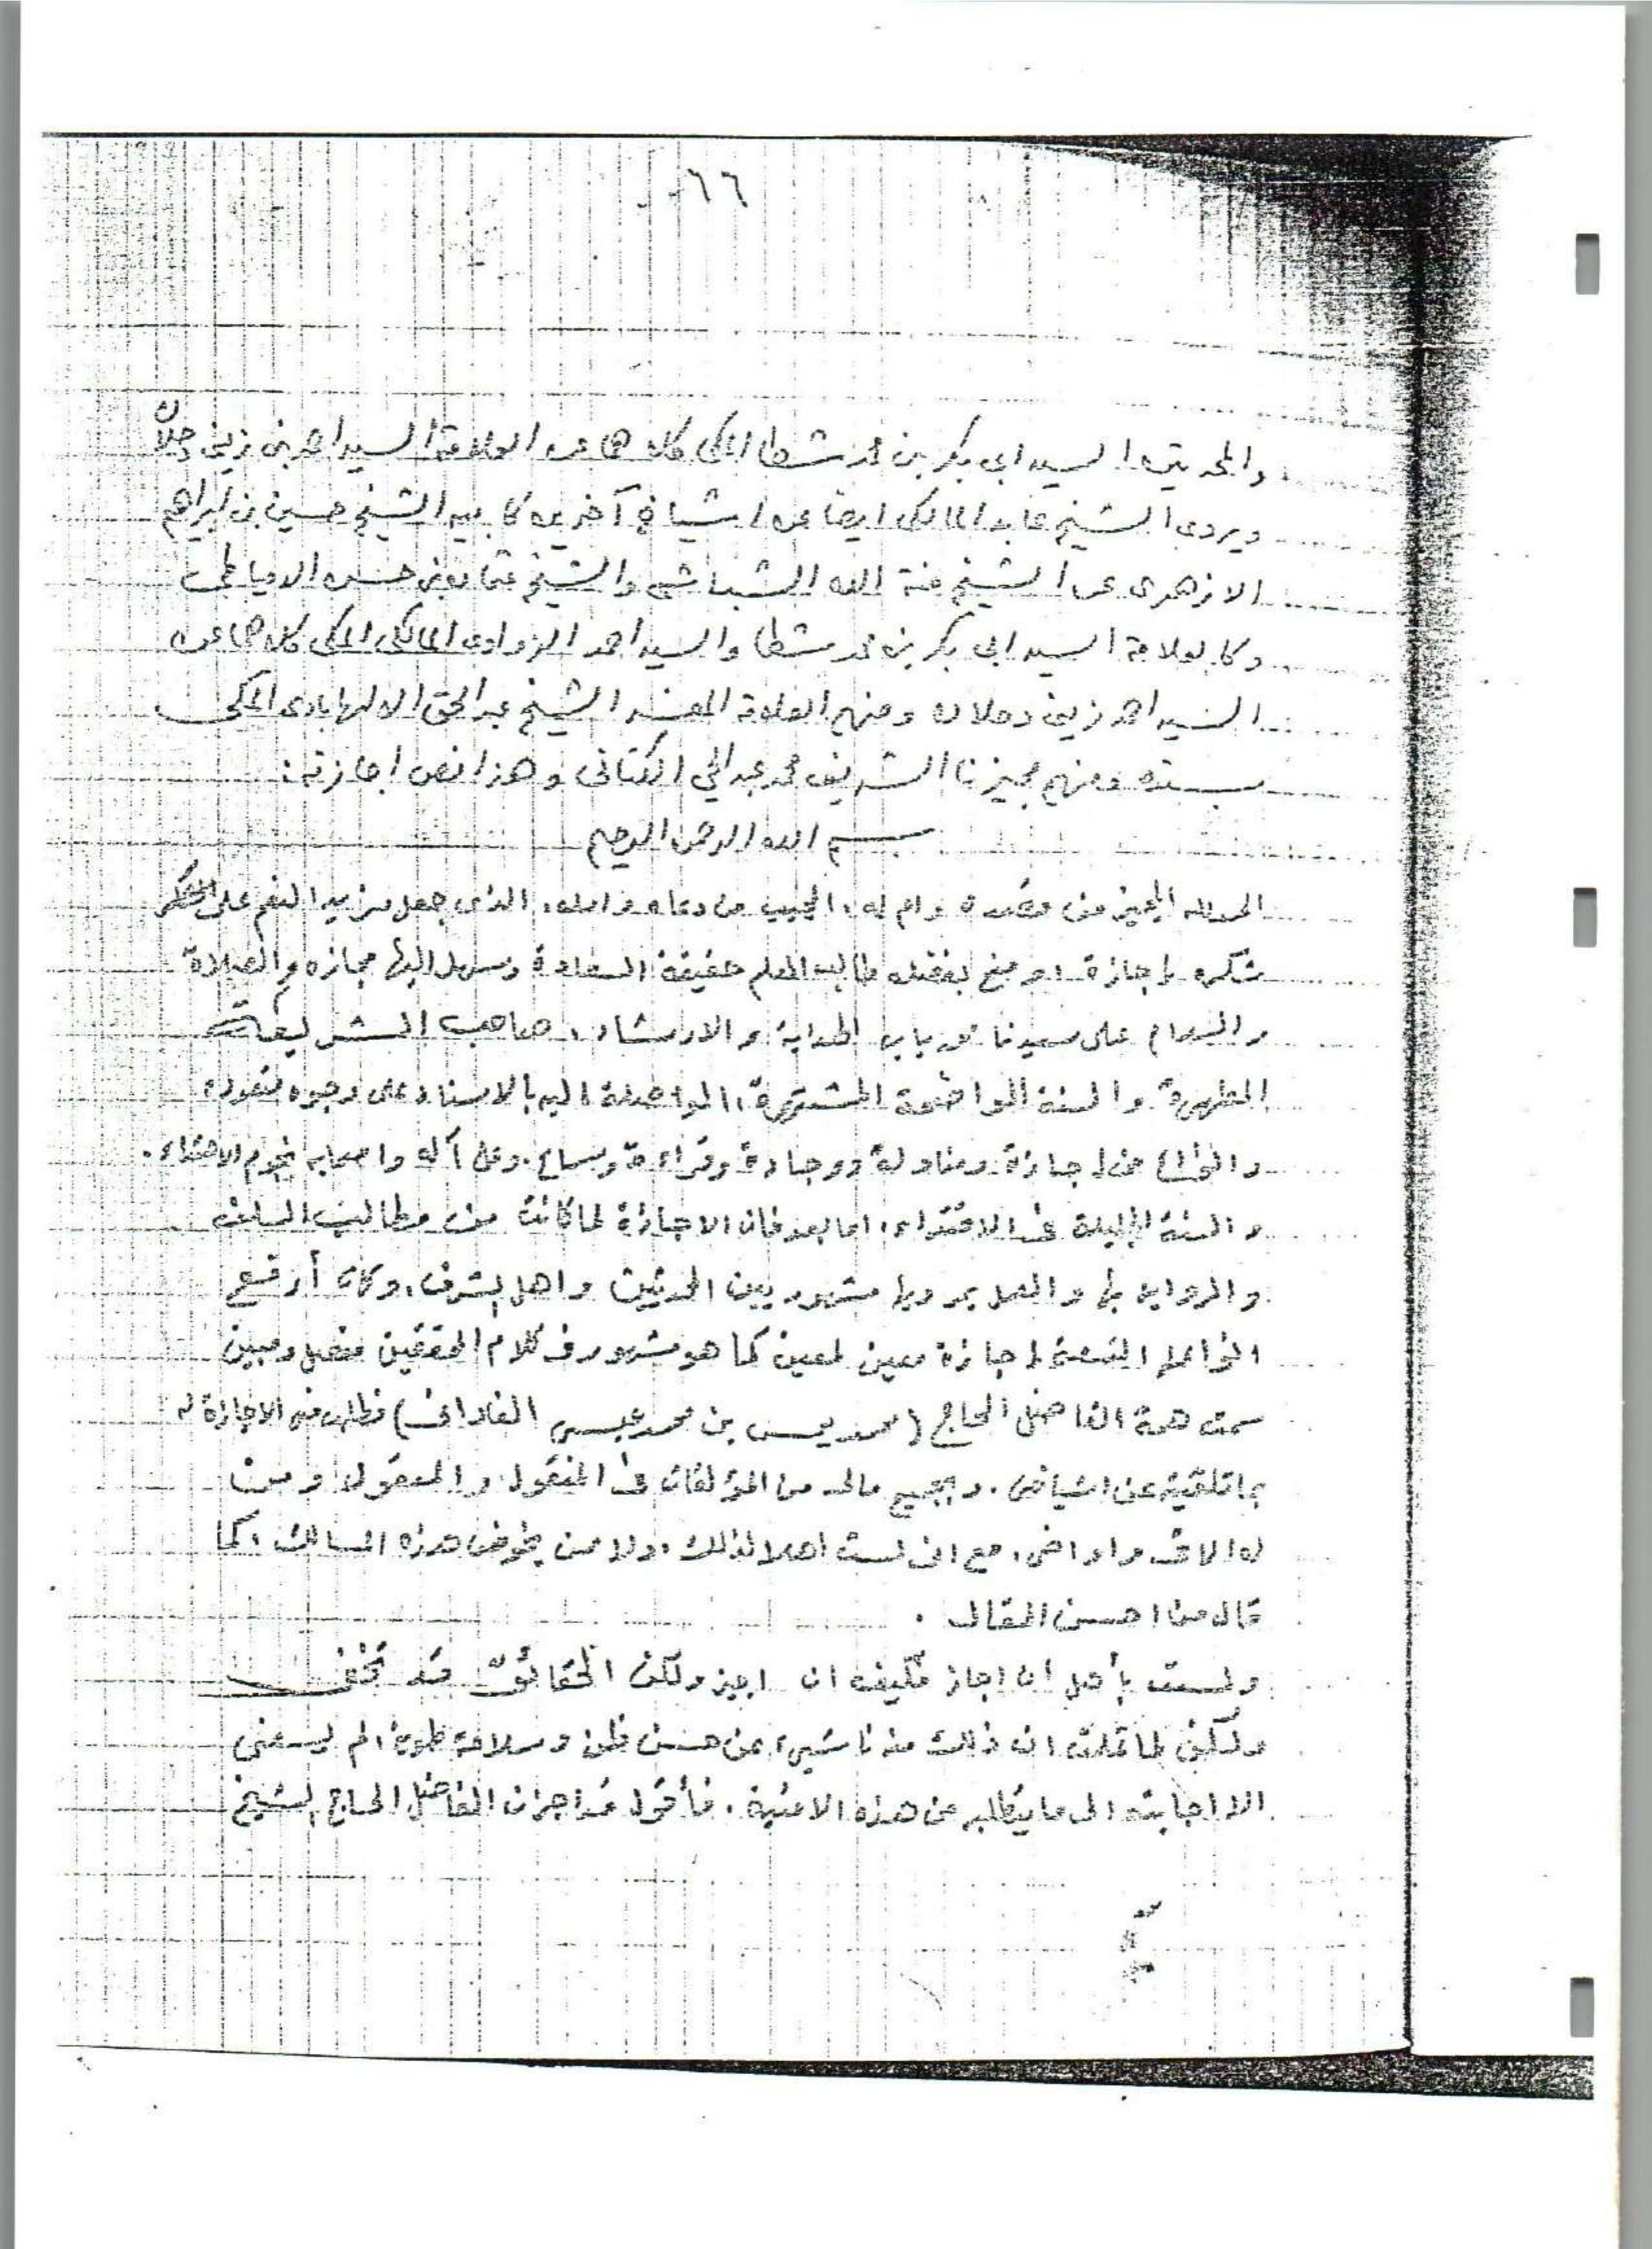 ٦٦
والمحدث السيد ابى بكر بن محمد شطا المكى كلاهما عن العلامة السيد احمد بن زينى دحلان
ويروى الشيخ عابد المالكى ايضا عن اشياخ آخرين كأبيه الشيخ حسين بن ابراهيم
الازهرى عن الشيخ منة الله الشباسى والشيخ عثمان بن حسن الدمياطى
وكالعلامة السيد ابى بكر بن محمد شطا والسيد احمد الزواوى المالكى المكى كلاهما عن
السيد احمد زينى دحلان ومنهم العلامة المفسر الشيخ عبد الحق الالهابادى المكى
بسنده ومنهم مجيزنا الشريف محمد عبد الحي الكتانى وهذا نص اجازته:
بسم الله الرحمن الرحيم
الحمد لله المجيز من قصده وام له، المجيب من دعاه وامله، الذى جعل مزيد النعم على
شكره اجازة، ومنح بفضله طالب العلم حقيقة السعادة وسهل اليها مجازه والصلاة
والسلام على سيدنا محمد باب الهداية والارشاد، صاحب الشريعة
المطهرة والسنة الواضحة المشتهرة، الواصلة اليه بالاسناد على وجوه
من اجازة ومناولة ووجادة وقراءة وسماع. وعلى آله واصحابه نجوم الاهتداء.
والسنة الجليلة فى الاقتداء، اما بعد فان الاجازة لما كانت من مطالب السلف
والرواية بها والعمل بمرويها مشهور بين المحدثين واهل الشرف، وكان أرفع
انواعها اجازة معين لمعين كما هو مشهور فى كلام المحققين مفصل ومبين
سمت همة الفاضل الحاج (محمد يس بن محمد عيسى الفادانى) فطلب منى الاجازة له
بما تلقيته عن اشياخى. وبجميع مالهم من المؤلفات فى المنقول والمعقول ومن
مع انى لست اهلا لذلك، ولا ممن يخوض هذه المسالك، كما
قال من احسن المقال.
ولست بأهل أن اجاز فكيف ان اجيز ولكن الحقائق قد تخفى
ولكن لما تحققت ان ذلك منه ناشىء عن حسن ظن وسلامة طوية لم يسعنى
الا اجابته الى ما يطلبه من هذه الامنية. فأقول قد اجزت الفاضل الحاج الشيخ